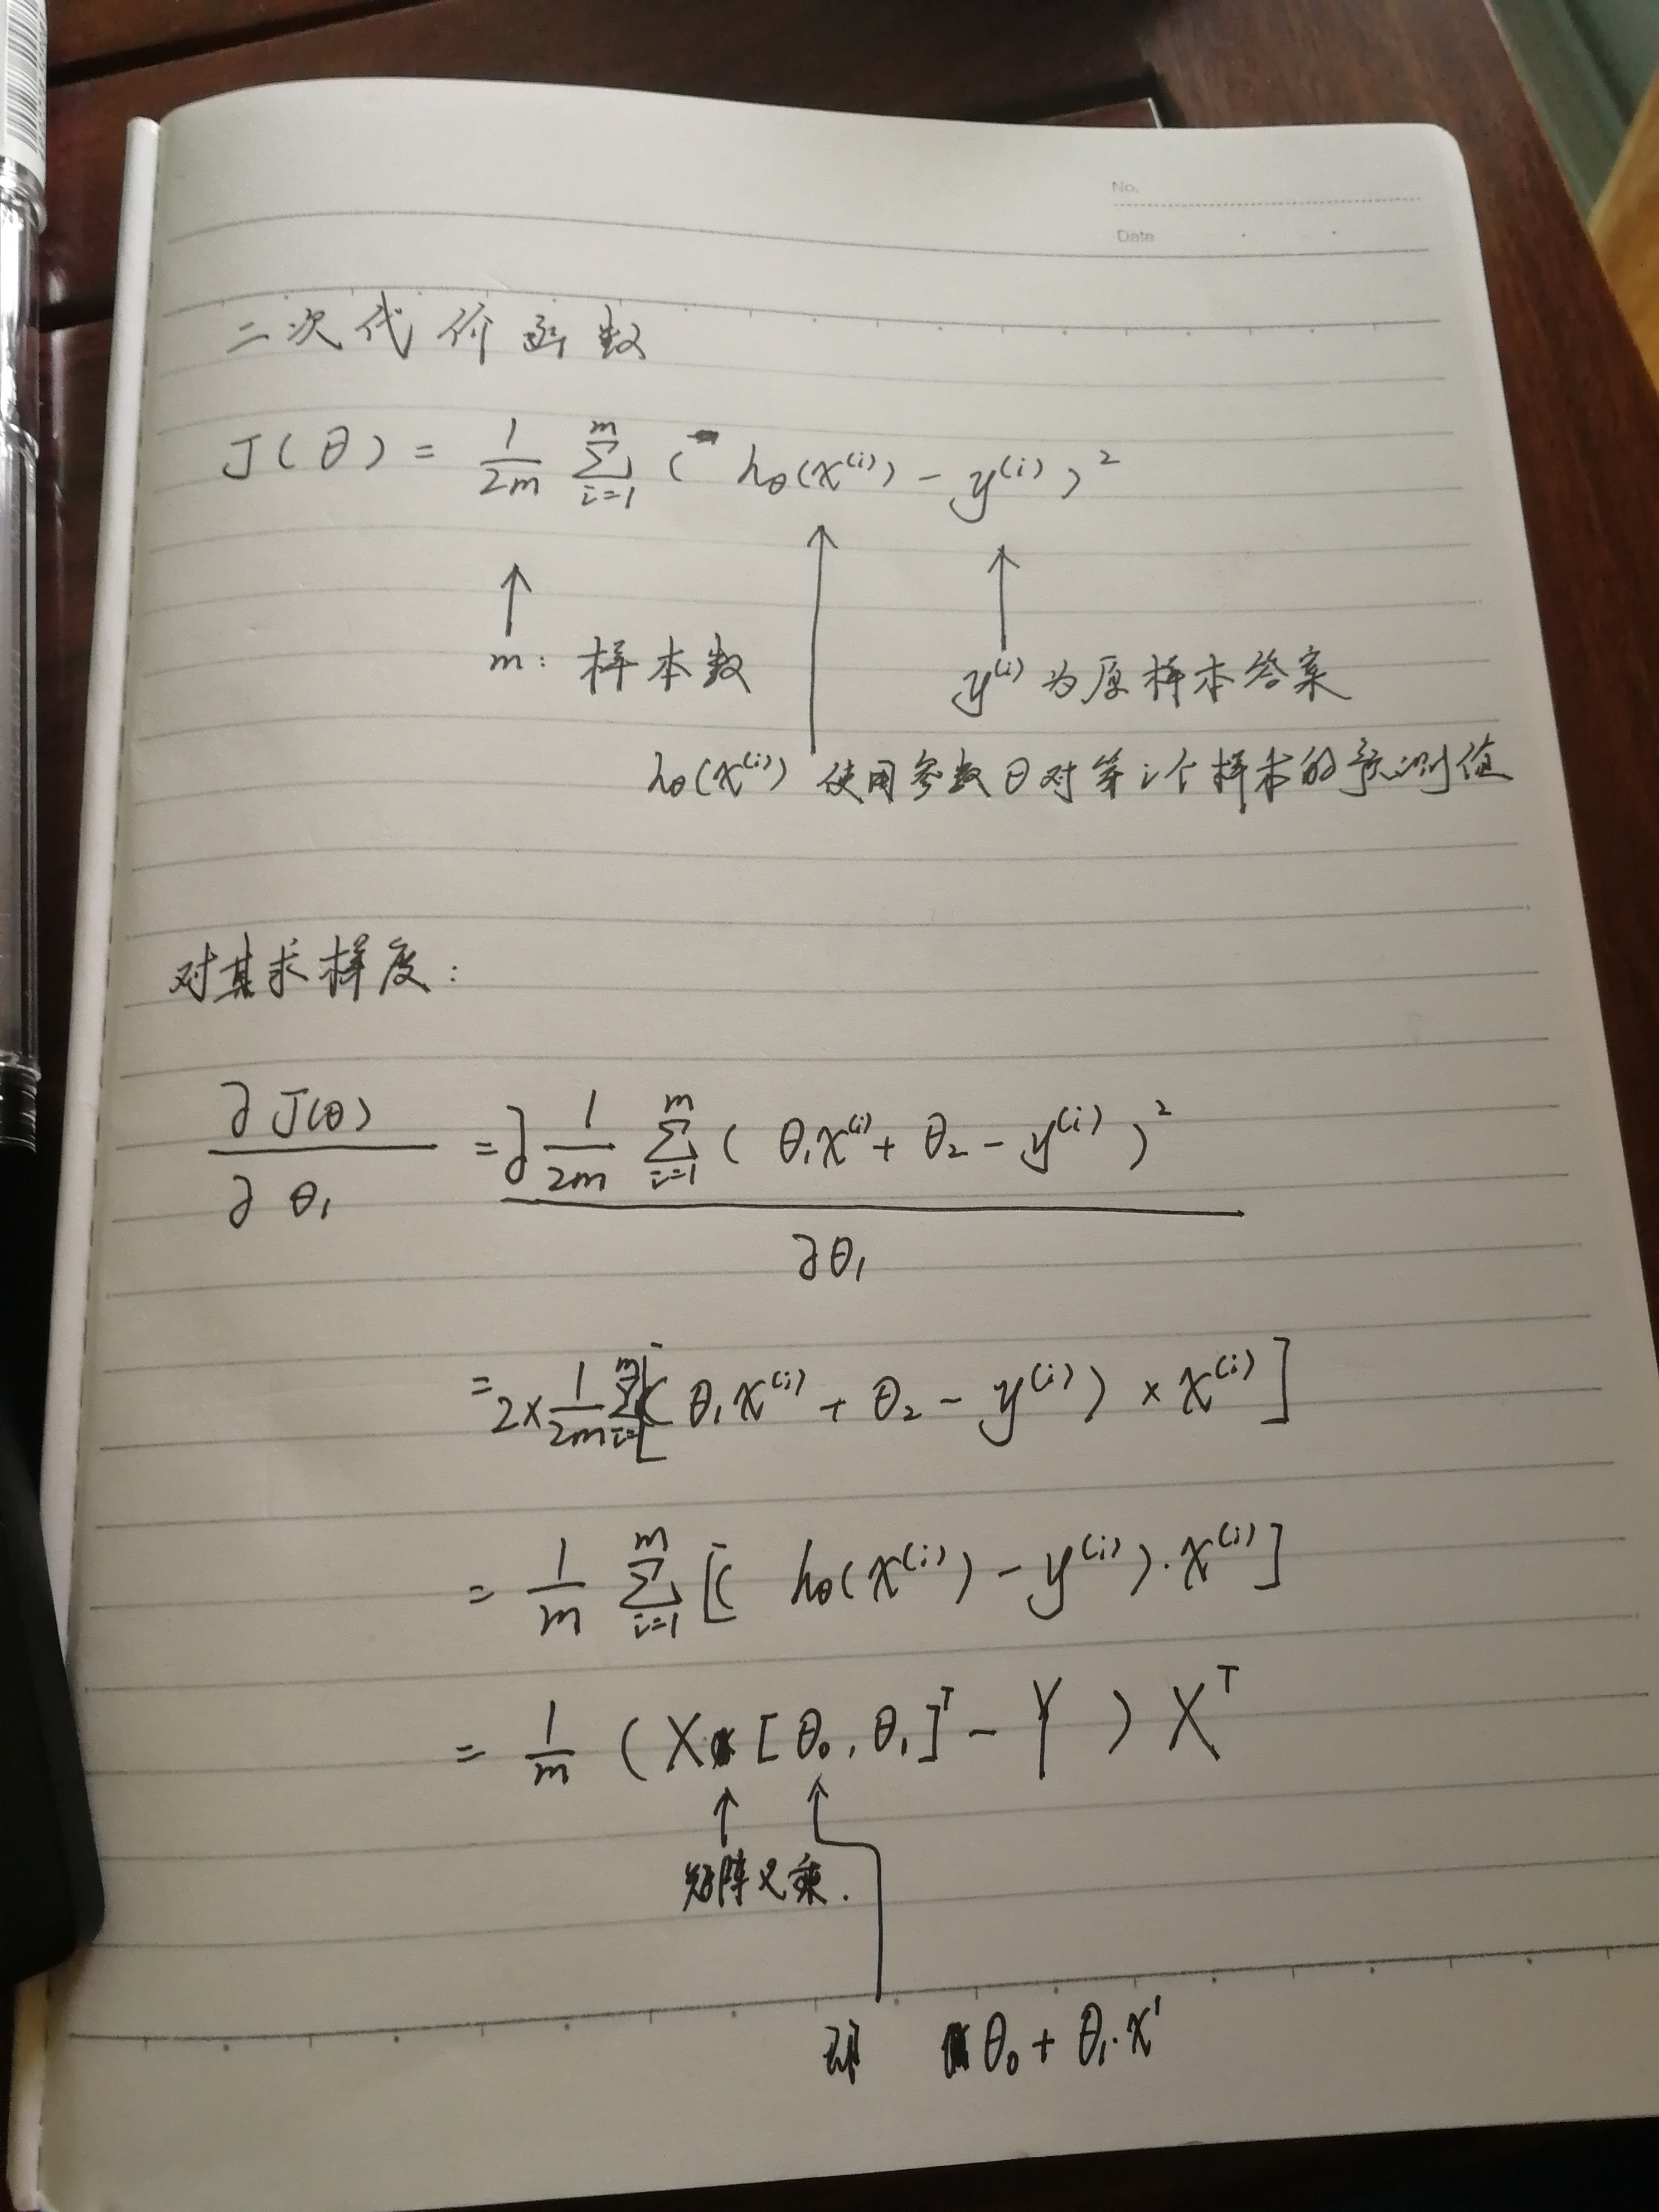 No.
Date
二次代价函数
J(θ) = 1/2m ∑_{i=1}^{m} ( h_θ(x^{(i)}) - y^{(i)} )^2
m: 样本数
y^{(i)} 为原样本答案
h_θ(x^{(i)}) 使用参数θ对第i个样本的预测值
对其求梯度:
∂J(θ)/∂θ₁ = ∂ 1/2m ∑_{i=1}^{m} ( θ₁x^{(i)} + θ₂ - y^{(i)} )^2 / ∂θ₁
= 2 × 1/2m ∑_{i=1}^{m} [( θ₁x^{(i)} + θ₂ - y^{(i)} ) × x^{(i)} ]
= 1/m ∑_{i=1}^{m} [( h_θ(x^{(i)}) - y^{(i)} ) · x^{(i)} ]
= 1/m ( X [ θ₀, θ₁ ]^T - Y ) X^T
矩阵叉乘.
即 θ₀ + θ₁·x^1